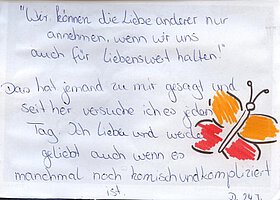 "Wir können die Liebe anderer nur
annehmen, wenn wir uns
auch für Liebenswert halten!"
Das hat jemand zu mir gesagt und
seit her versuche ich es jeden
Tag. Ich Liebe und werde
geliebt auch wenn es
manchmal noch komisch und kompliziert
ist